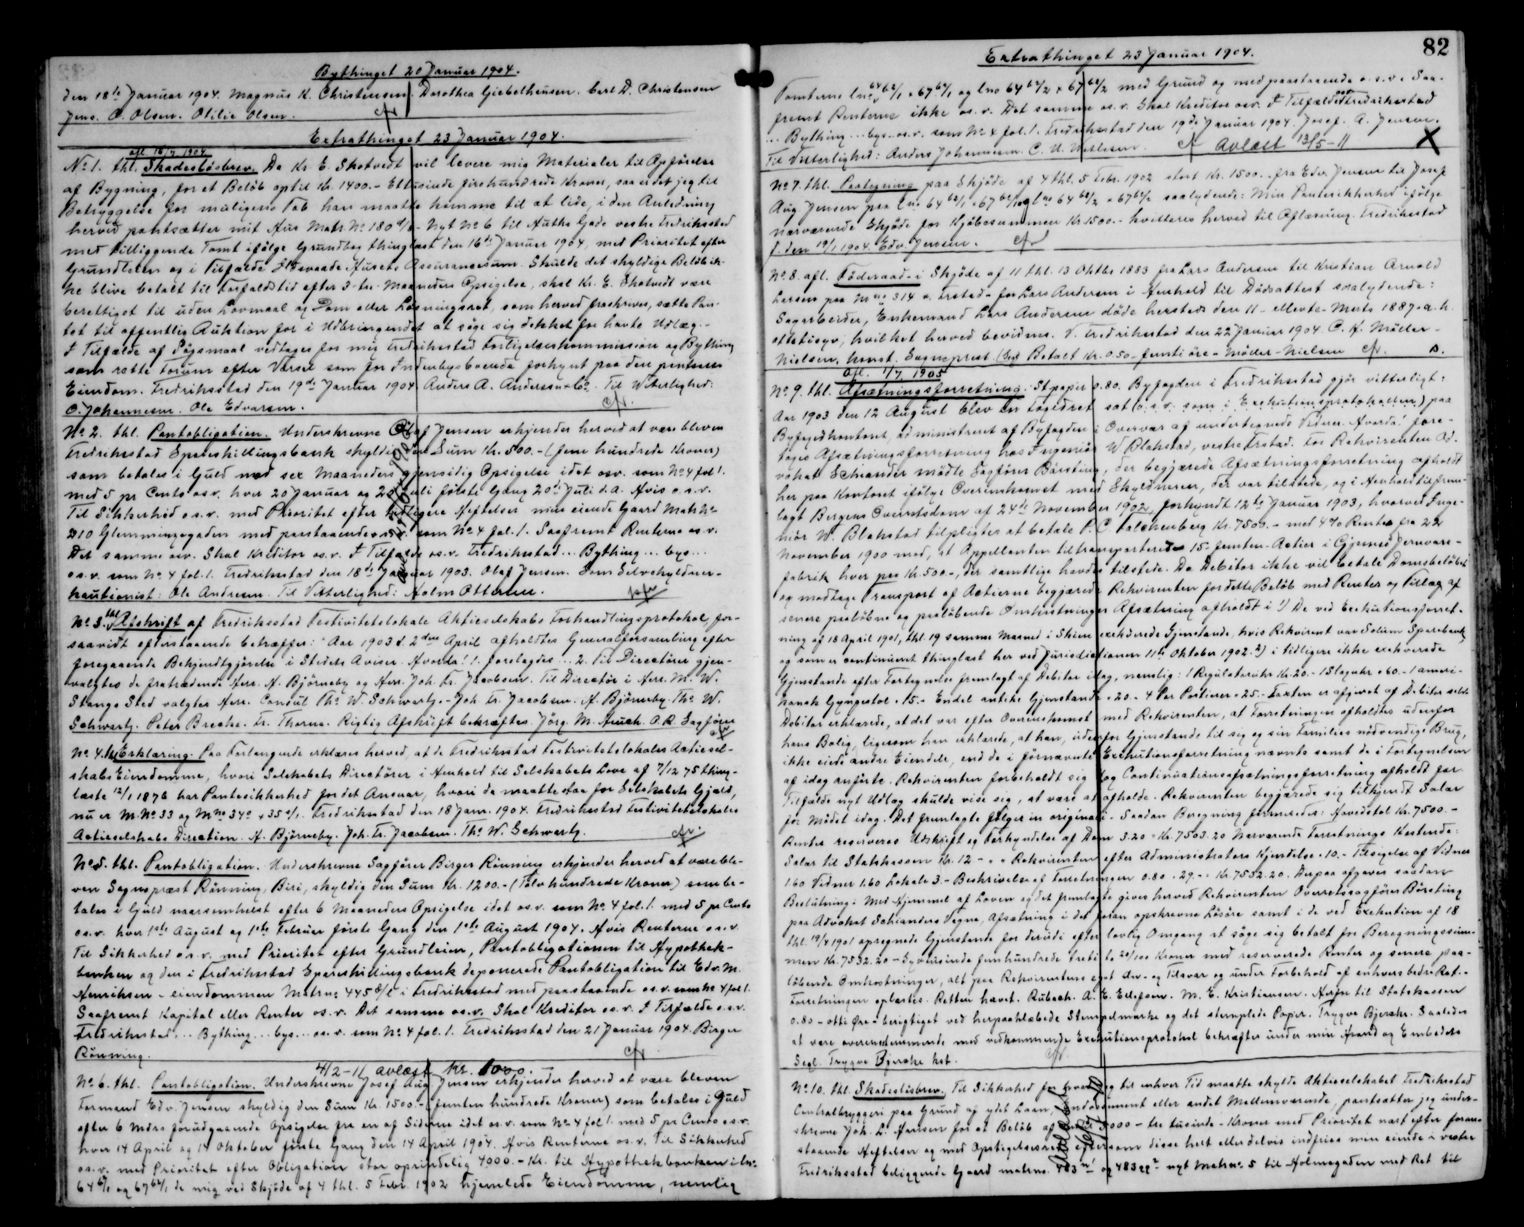 Bythinget 20 Januar 1904.
den 18de Januar 1904. Magnus K. Christensen. Dorothea Giebelhausen. Carl D. Christensen
Jens. O. Olsen. Otilie Olsen.
Extrathinget 23 Januar 1904.
afl. 16/7 1904
No 1. thl. Skadeslösbrev. Da Kr. E. Skotvedt vil levere mig Materialer til Opförelse
af Bygning, for et Belöb optil Kr. 1400.- Ettusinde firehundrede Kroner, saa er det jeg til
Betryggelse for muligens Tab han maatte komme til at lide, i den Anledning
herved pantsætter mit Hus Matr No 180 Nyt No 6 til Gade vestre Fredriksstad
med tilliggende Tomt ifölge Grundbrev thinglæst den 16de Januar 1904, med Prioritet efter
Grundleien og i Tilfælde Ildsvaade Husets Assurancesum. Skulde det skyldige Belöb ik-
ke blive betalt til forfaldstid efter 3 tre Maaneders Opsigelse, skal Kr. E. Skotvedt være
berettiget til uden Lovmaal og Dom eller Lösningsret, som herved fraskrives, sætte Pan-
tet til offentlig Auktion for i Udbringendet at söge sig dækket for havte Udlæg.-
I Tilfælde af Sögsmaal vedtages for mig Fredriksstad Forligelseskommission og Bything
som rette Forum efter Varsel som for Indenbysboende forkynt paa den pantsatte
Eiendom. Fredriksstad den 19de Januar 1904. Anders A. Andersen. Til Vitterlighed:
O. Johannesen. Ole Edvarsen.
No 2. thl. Pantobligation. Underskrevne Olaf Jensen erkjender herved at være bleven
Fredriksstad Spareskillingsbank skyldig den Sum Kr. 500.- (fem hundrede Kroner)
som betales i Guld med sex Maaneders gjensidig Opsigelse idet osv. som No 4 fol 1.
med 5 pr Cento osv. hver 20 Januar og 20 Juli förste Gang 20de Juli d.A. Hvis o.s.v.
Til Sikkerhed o.s.v. med Prioritet efter tidligere Heftelser min eiende Gaard Matr No
210 Glemmingegaden med paastaaende som No 4 fol. 1. Saafremt Renterne os.v.
Det samme osv. Skal Kreditor os.v. I Tilfælde os.v. Fredriksstad... Bything... bys...
o.s.v. som No 4 fol. 1. Fredriksstad den 18de Januar 1903. Olaf Jensen. Som Selvskyldner-
kautionist: Ole Andresen. Til Vitterlighed: Holm Ottersen.
No 3. thl Afskrift af Fredriksstad Festivitetslokale Aktieselskabs Forhandlingsprotokol, for-
saavidt efterstaaende betræffer: Aar 1903 d. 2den April afholdtes Generalforsamling efter
foregaaende Bekjendtgjörelse i Stedets Aviser. Hvorda: 1. foretoges ... 2. Til Directörer gjen-
valgtes de fratrædende Herr. H. Björneby og Herr. Joh. Fr. Jacobsen. Til Directör i Herr. M. W.
Stangs Sted valgtes Herr. Consul Th. W. Schwartz. Joh Fr. Jacobsen. H. Björneby. Th. W.
Schwartz. Peter Breche. Fr. Thorne. Rigtig Afskrift bekræftes. Jörg. M. Huuch. O.R. Sagförer
No. 4. thl Erklæring. Paa Forlangende erklæres herved, at de Fredriksstad Festivitetslokales Actiesel-
skabs Eiendomme, hvori Selskabets Directörer i Henhold til Selskabets Love af 7/12 75 thing-
læste 12/1 1876 har Pantesikkerhed for det Ansvar, hvori de maatte staa for Selskabets Gjæld,
nu er M. No 33 og Mno 34 + 35. Fredriksstad den 18 Janr. 1904. Fredriksstad Festivitetslokales
Actieselskabs Direction. H. Björneby. Joh. Fr. Jacobsen. Th. W. Schwartz.
No 5. thl. Pantobligation. Underskrevne Sagförer Birger Rönning erkjender herved at være ble-
ven Sognepræst Rönning, Biri, skyldig den Sum Kr. 1200.- (Tolv hundrede Kroner) som be-
tales i Guld naarsomhelst efter 6 Maaneders Opsigelse idet os.v. som No 4 fol. 1. med 5 pr Cento
o.s.v. hver 1ste August og 1ste Februar förste Gang den 1ste August 1904. Hvis Renterne o.s.v.
Til Sikkerhed o.s.v. med Prioritet efter Grundleien, Pantobligationen til Hypothek-
banken og den i Fredriksstad Spareskillingsbank deponerede Pantobligation til Edv. M.
Henriksen - eiendommen Matr no 445 i Fredriksstad med paastaaende os.v. som No 4 fol. 1.
Saafremt Kapital eller Renter os.v. Det samme os.v. Skal Kreditor os.v. I Tilfælde o.s.v.
Fredriksstad... Bything... bys... os.v. som No 4 fol. 1. Fredriksstad den 21 Januar 1904. Birger
Rönning.
4/2-11 avlæst kr. 1000.-
No 6. thl. Pantobligation. Underskrevne Josef Aug Jensen erkjender herved at være bleven
Formand Edv. Jensen skyldig den Sum Kr. 1500.- (femten hundrede Kroner) som betales i Guld
efter 6 Mdrs forudgaaende Opsigelse fra en af Siderne idet os.v. som No 4 fol 1. med 5 pr Cento osv.
hver 14 April og 14 Oktober förste Gang den 14 April 1904. Hvis Renterne os.v. Til Sikkerhed
os.v. med Prioritet efter Obligation stor oprindelig 4000.- Kr. til Hypothekbanken i lno.
64 og 67 de mig ved Skjöde af 4 thl. 5 Febr. 1902 hjemlede Eiendomme, nemlig
82
Extrathinget 23 Januar 1904.
Tomterne lno 64 + 67 og lno 64 + 67 med Grund og med paastaaende o.s.v. Saa-
fremt Renterne ikke os.v. Det samme os.v. Skal Kreditor osv. I Tilfælde Fredriksstad
... Bything... bys.. os.v. som No 4 fol. 1. Fredriksstad den 19de Januar 1904. Josef. A. Jensen.
Til Vitterlighed: Anders Johannesen. C. A. avlæst 13/5-11 X
No 7. thl. Paategning paa Skjöde af 4 thl. 5 Febr. 1902 stort Kr. 1500.- fra Edv Jensen til Josef
Aug Jensen paa lno 64 + 67 og lno 64 + 67 saalydende: Min Pantesikkerhed ifölge
nærværende Skjöde for Kjöbesummen Kr. 1500.- kvitteres herved til Aflæsning. Fredriksstad
f. den 19/1 1904. Edv. Jensen.
No 8. afl. Föderaad i Skjöde af 11 thl. 13 Oktbr 1883 fra Lars Andersen til Kristian Arnold
Larsen paa Mno 314 v. Frstad - for Lars Andersen i Henhold til Dödsattest saalydende:
Sagarbeider, Enkemand Lars Andersen döde hersteds den 11 - ellevte - Marts 1887. a.h.
ottetisyv, hvilket herved bevidnes. V. Fredriksstad den 22 Januar 1904. C. H. Möller-
Nielsen, konst. Sognepræst. Betalt Kr. 0.50 - femti öre - Möller-Nielsen
afl. 1/7 1905
No 9. thl. Afsætningsforretning. St.papir 0.80. Byfogden i Fredriksstad gjör vitterligt:
Aar 1903 den 12 August blev en Fogedret sat (o.s.v. som i Exekutionsprotokollen) paa
Byfogedkontoret, administreret af Byfogden i Overvær af undertegnede Vidner. Hvorda: fore-
toges Afsætningsforretning hos Ingeniör W Blakstad, vestre Frstad. For Rekvirenten Ad-
vokat Schiander mödte Sagförer Börsting, der begjærede Afsætningsforretning afholdt
her paa Kontoret ifölge Overenskomst med Skyldneren, der var tilstede, og i Henhold til frem-
lagt Bergens Overretsdom af 24de November 1902, forkyndt 12te Januar 1903, hvorved Inge-
niör W. Blakstad tilpligtes at betale P. C Falckenberg Kr. 7500.- med 4% Renter fra 22
November 1900 med, at Appellanten tiltransporteredes 15 femten Actier i Gjemsö Jernvare-
fabrik hver paa Kr. 500.-, der samtlige havdes tilstede. Da Debitor ikke vil betale Domsbelöbet
og modtage Transport af Actierne begjærede Rekvirenten for dette Belöb med Renter og Tillæg af
senere paalöbne og paalöbende Omkostninger Afsætning afholdt i 1) De ved Exekutionsforret-
ning af 18 April 1901, thl. 19 samme Maaned i Skien exekverede Gjenstande, hvis Rekvirent var Solum Sparebank
og som er continueret thinglæst her ved Jurisdictionen 11te Oktober 1902. 2) i tidligere ikke exekverede
Gjenstande efter Fortegnelse fremlagt af Debitor idag, nemlig: 1 Regulatoruhr Kr. 20.- 1 Slagouhr - 60.- 1 ameri-
kansk Gyngestol. 15.- Endel antike Gjenstande. 20.- 4 Par Portierer - 25.- Taxten er afgivet af Debitor selv.
Debitor erklærede, at det var efter Overenskomst med Rekvirenten, at Forretningen afholdtes udenfor
hans Bolig, ligesom han erklærede, at han, udenfor Gjenstande til sig og sin Families nödvendige Brug,
ikke eiede andre Eiendele, end de i förnævnte Exekutionsforretning nævnte samt de i Fortegnelsen
af idag anförte. Rekvirenten forbeholdt sig og Continuationsafsætningsforretning afholdt for
Tilfælde nyt Udlæg skulde vise sig, at være at afholde. Rekvirenten begjærede sig tilkjendt Salær
for Mödet idag. Det fremlagte fölger in originali. Saadan Beregning fremsattes: Hovedstol Kr. 7500.-
Renter reserveres Udskrift og Forkyndelse af Dom 3.20 - Kr. 7503.20 Nærværende Forretnings Kostende:
Salær til Statskassen Kr. 12.- Rekvirenten efter Administrators Kjendelse. 10.- Tilsigelse af Vidner
1.60 Vidner 1.60 Lokale 3.- Beskrivelse af Forretningen 0.80 - 29.- Kr. 7532.20. Derpaa afgaves saadan
Beslutning: Med Hjemmel af Loven og det fremlagte gives herved Rekvirenten Overretssagförer Börsting
paa Advokat Schianders Vegne, Afsætning i det foran opskrevne Lösöre samt i de ved Exekution af 18
thl. 19/4 1901 opregnede Gjenstande for derudi efter lovlig Omgang at söge sig betalt for Beregningssum-
men Kr. 7532.20 - Syvtusinde femhundrede tretito 20/100 Kroner med reserverede Renter og senere paa-
löbende Omkostninger, alt paa Rekvirentens eget An- og Tilsvar og under Forbehold af enhvers bedre Ret.-
Forretningen oplæstes. Retten hævet. Rubach. A. E. Ellefsen. M. E. Kristiansen. Hævn til Statskassen
0.80 - otti Öre - berigtiget ved herpaaklæbede Stempelmærke og det stemplede Papir. Trygve Bjercke. Saaledes
at være overensstemmende med vedkommende Exekutionsprotokol bekræfter under min Haand og Embeds
Segl. Trygve Bjercke kst.
No. 10. thl. Skadeslösbrev. Til Sikkerhed for hvad jeg til enhver Tid maatte skylde Aktieselskabet Fredriksstad
Centralbryggeri paa Grund af ydt Laan, Endossement eller andet Mellemværende, pantsætter jeg under-
skrevne Joh. L. Hansen for et Belöb af 3000 - tre tusinde - Kroner med Prioritet næst efter foran-
staaende Heftelser og med Opstigelsesret eftersom disse helt eller delvis indfries min eiende i vestre
Fredriksstad beliggende Gaard matrno. 483 og 483 nyt Matrno. 5 til Holmegaden med Ret til